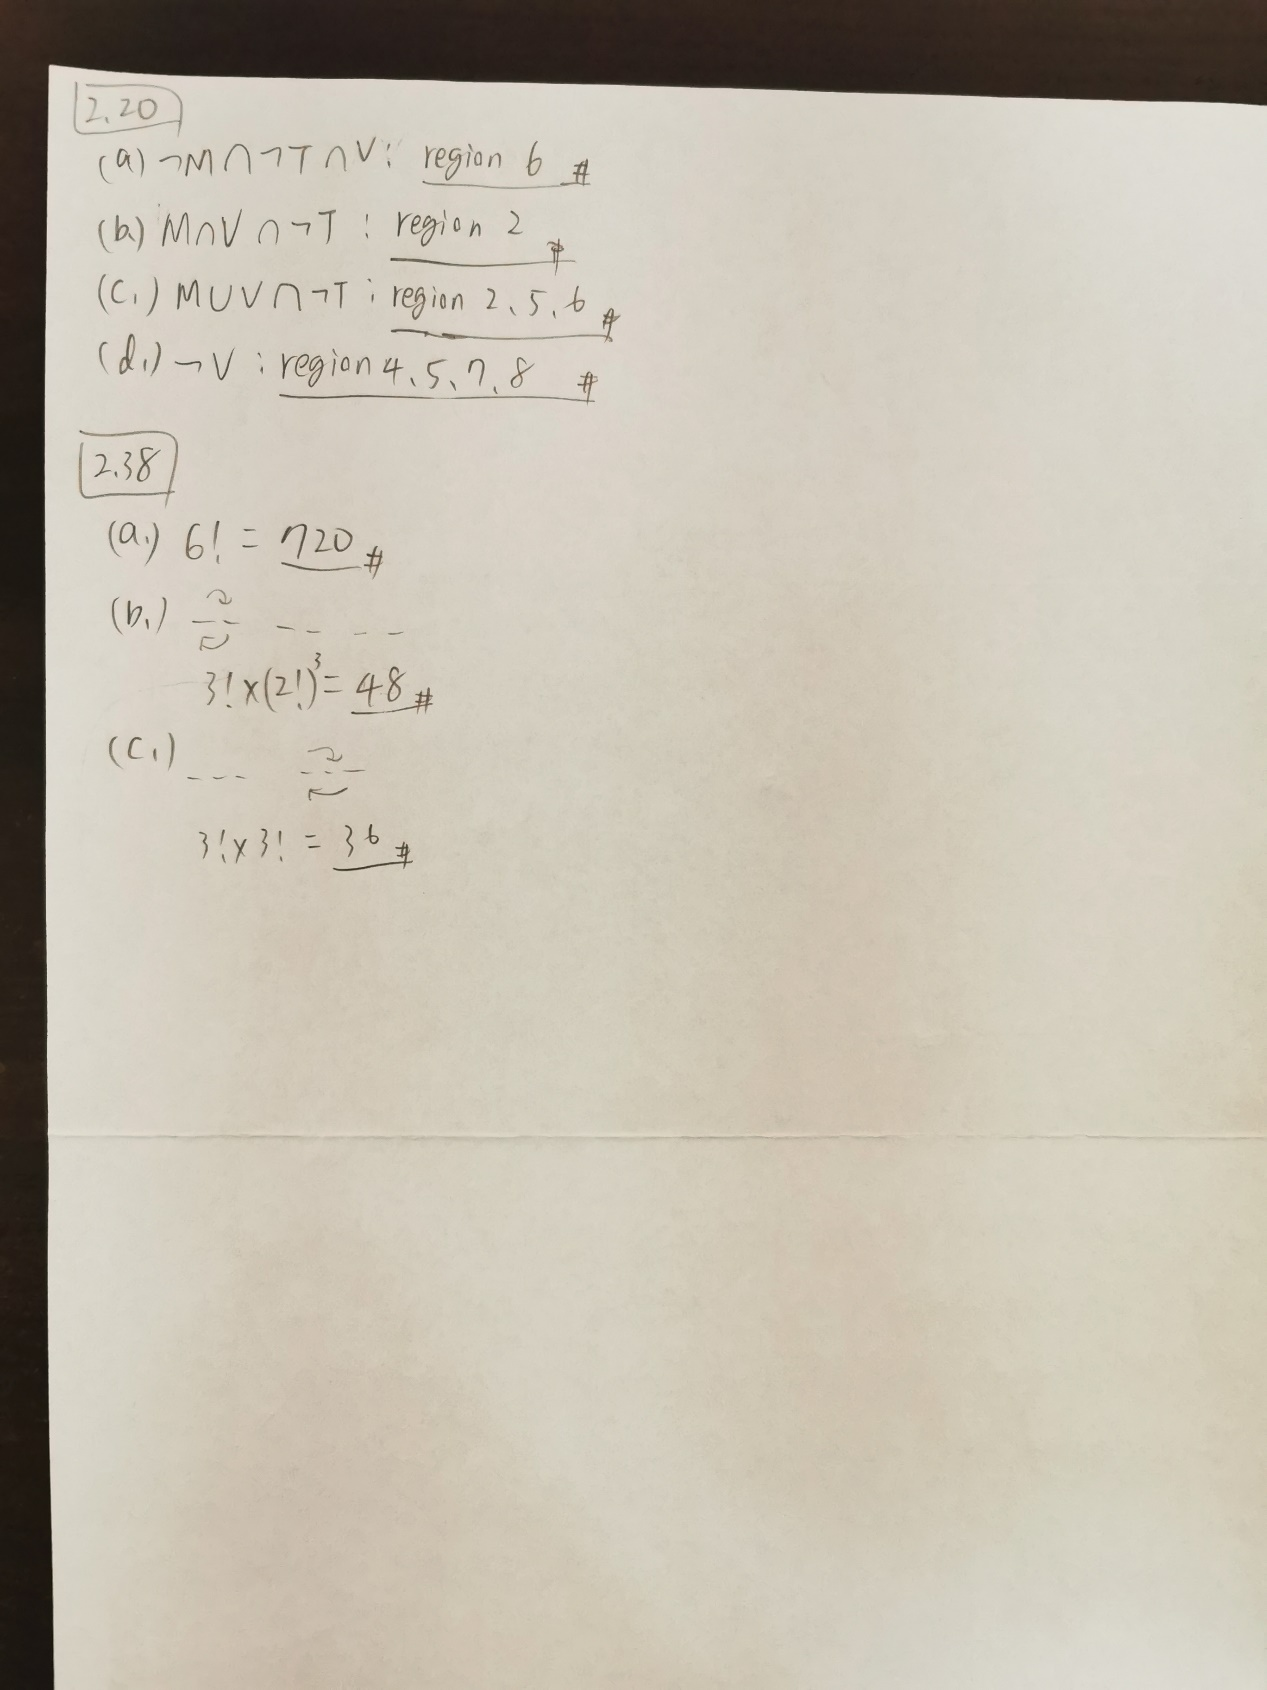 2.20
(a) ¬M∩¬T∩V: region 6 #
(b.) M∩V∩¬T: region 2 #
(c.) M∪V∩¬T: region 2、5、6 #
(d.) ¬V: region 4、5、7、8 #
2.38
(a.) 6! = 720 #
(b.) __ __ __
3!×(2!)³= 48 #
(c.) --- ---
3!×3! = 36 #